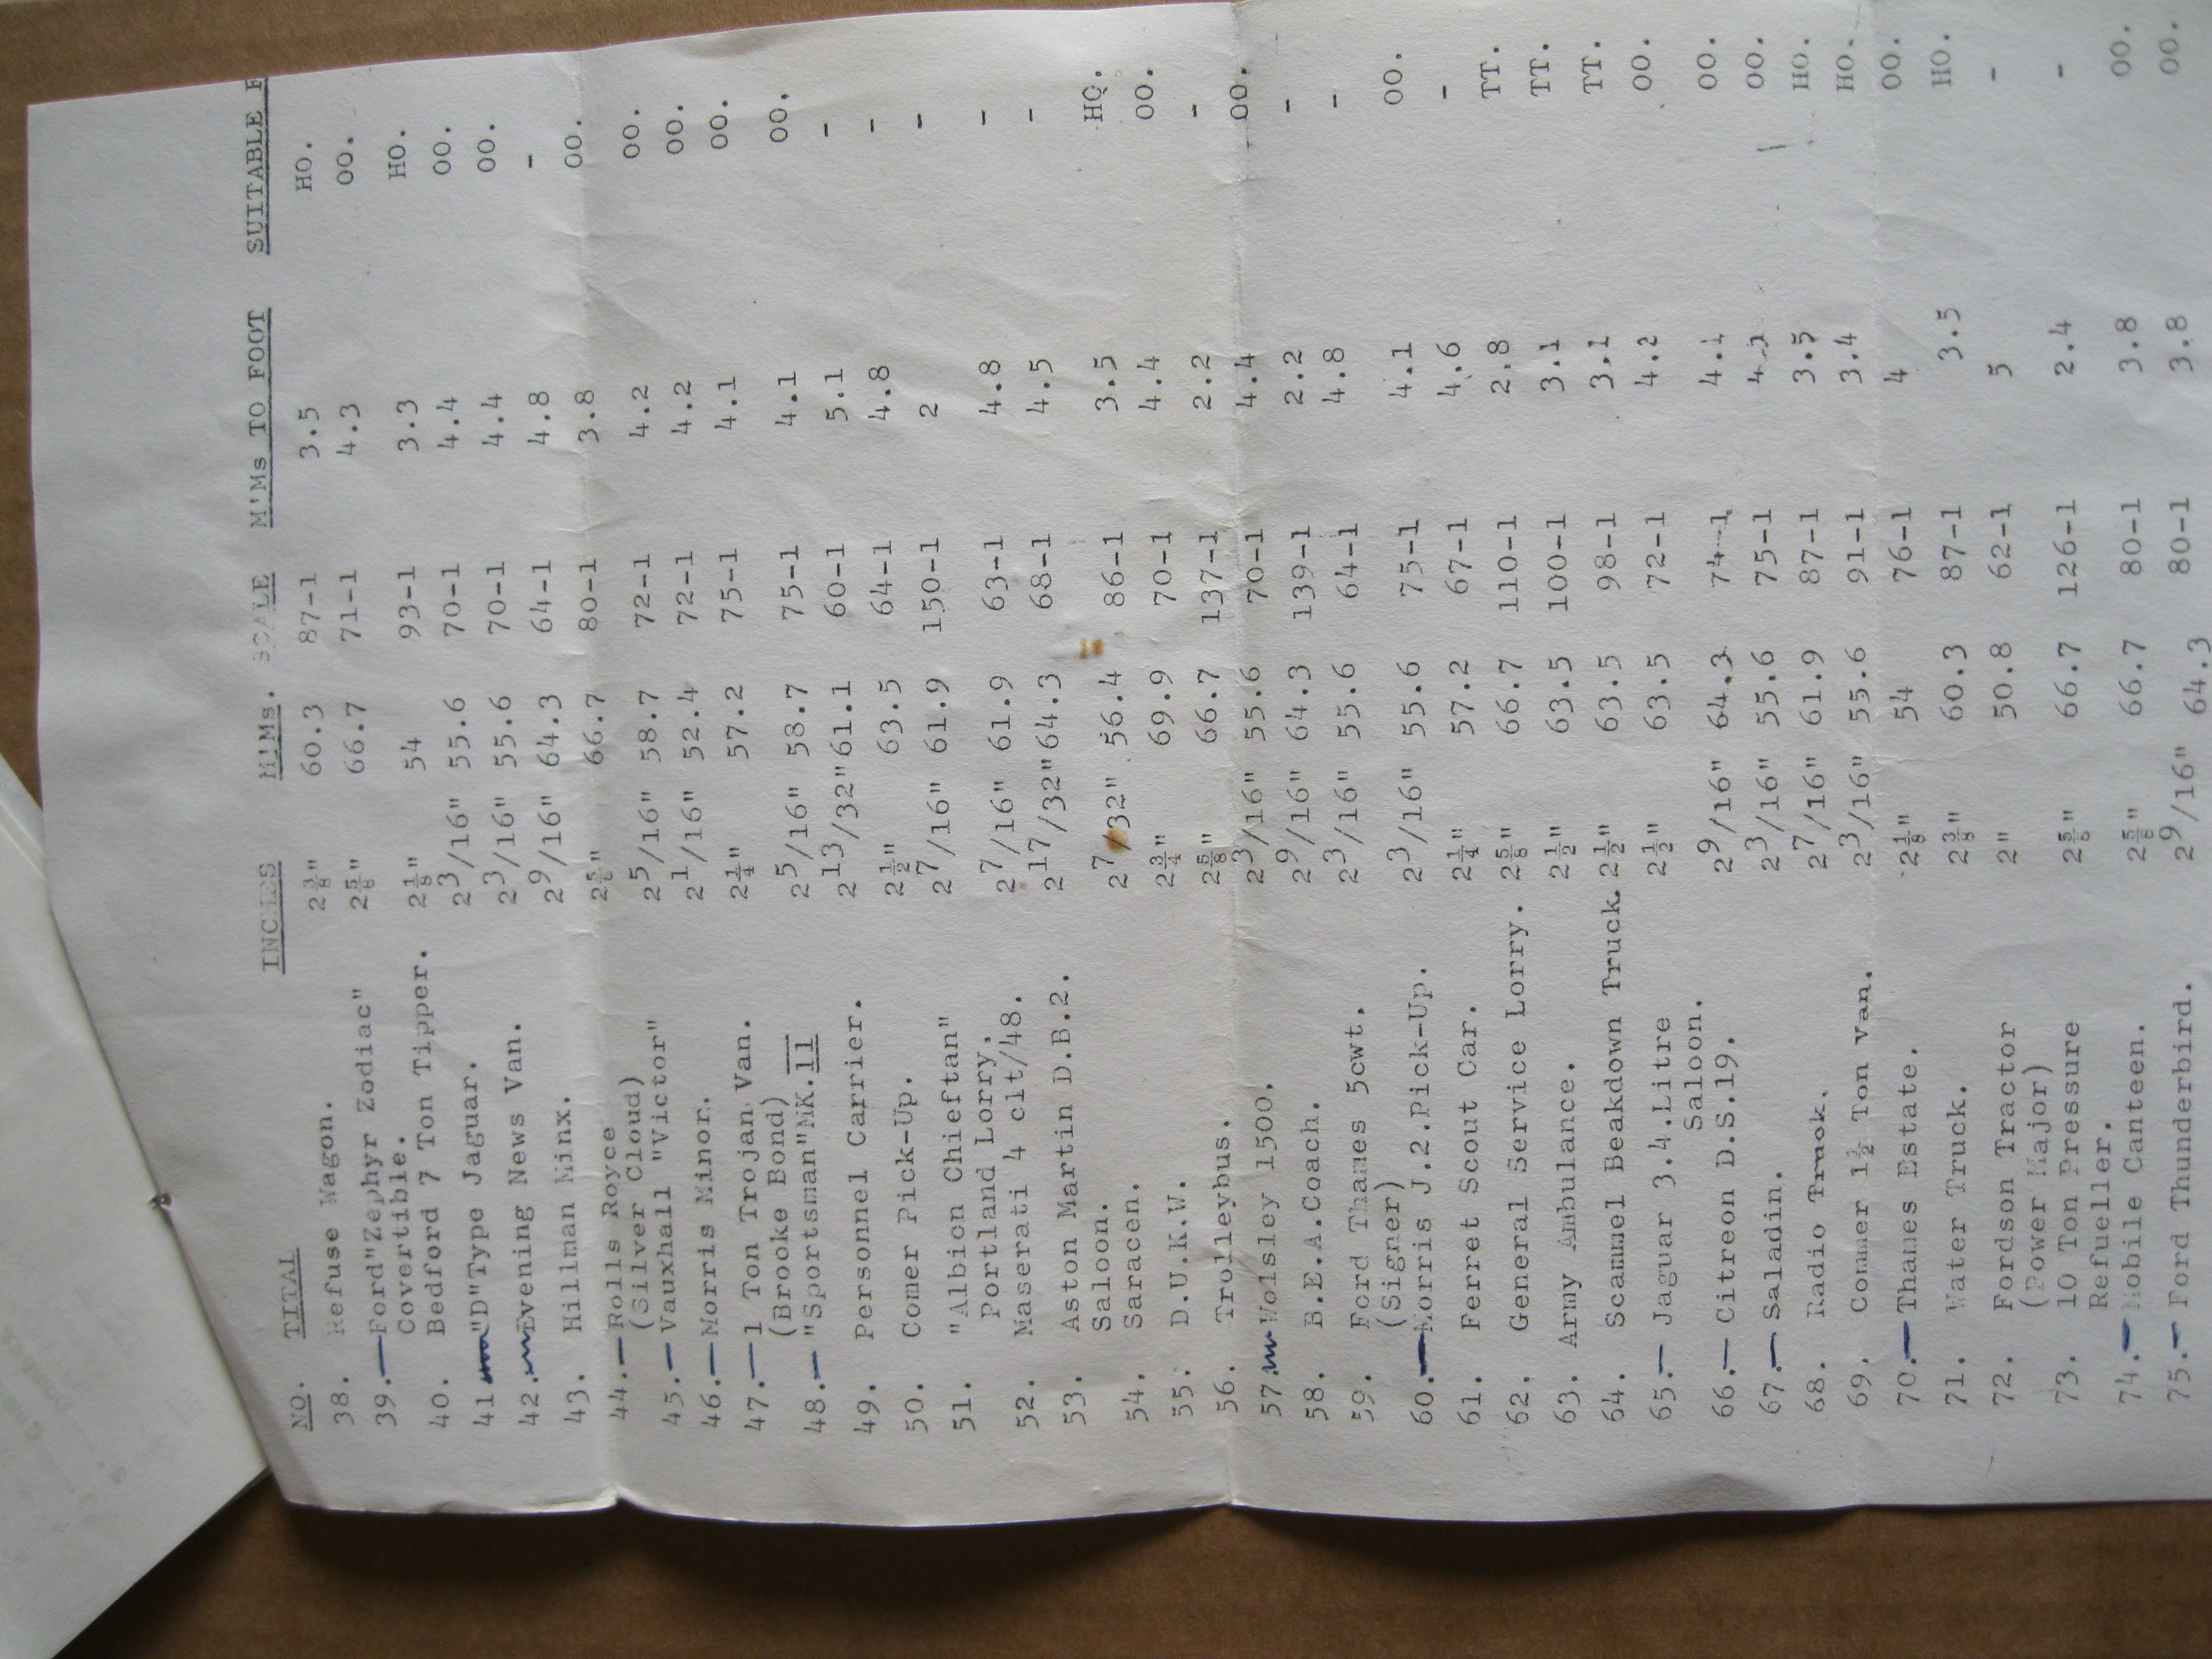 NO. TITAL INCHES M'Ms. SCALE M'Ms TO FOOT SUITABLE F
38. Refuse Wagon. 2 3/8" 60.3 87-1 3.5 HO.
39. Ford"Zephyr Zodiac" 2 5/8" 66.7 71-1 4.3 OO.
Covertible.
40. Bedford 7 Ton Tipper. 2 1/8" 54 93-1 3.3 HO.
41 "D"Type Jaguar. 2 3/16" 55.6 70-1 4.4 OO.
42. Evening News Van. 2 3/16" 55.6 70-1 4.4 OO.
43. Hillman Minx. 2 9/16" 64.3 64-1 4.8 -
2 5/8" 66.7 80-1 3.8 OO.
44. Rolls Royce 2 5/16" 58.7 72-1 4.2 OO.
(Silver Cloud)
45. Vauxhall "Victor" 2 1/16" 52.4 72-1 4.2 OO.
46. Morris Minor. 2 1/4" 57.2 75-1 4.1 OO.
47. 1 Ton Trojan Van. 2 5/16" 58.7 75-1 4.1 OO.
(Brooke Bond)
48. "Sportsman"MK.11 2 13/32" 61.1 60-1 5.1 -
49. Personnel Carrier. 2 1/2" 63.5 64-1 4.8 -
50. Comer Pick-Up. 2 7/16" 61.9 150-1 2 -
51. "Albion Chieftan" 2 7/16" 61.9 63-1 4.8 -
Portland Lorry.
52. Maserati 4 clt/48. 2 17/32" 64.3 68-1 4.5 -
53. Aston Martin D.B.2. 2 7/32" 56.4 86-1 3.5 HO.
Saloon.
54. Saracen. 2 3/4" 69.9 70-1 4.4 OO.
55. D.U.K.W. 2 5/8" 66.7 137-1 2.2 -
56. Trolleybus. 2 3/16" 55.6 70-1 4.4 OO.
57. Wolsley 1500. 2 9/16" 64.3 139-1 2.2 -
58. B.E.A.Coach. 2 3/16" 55.6 64-1 4.8 -
59. Ford Thames 5cwt. 2 3/16" 55.6 75-1 4.1 OO.
(Signer)
60. Morris J.2.Pick-Up. 2 1/4" 57.2 67-1 4.6 -
61. Ferret Scout Car. 2 5/8" 66.7 110-1 2.8 TT.
62. General Service Lorry. 2 1/2" 63.5 100-1 3.1 TT.
63. Army Ambulance. 2 1/2" 63.5 98-1 3.1 TT.
64. Scammel Beakdown Truck. 2 1/2" 63.5 72-1 4.2 OO.
65. Jaguar 3.4.Litre 2 9/16" 64.3 74-1 4.1 OO.
Saloon.
66. Citreon D.S.19. 2 3/16" 55.6 75-1 4.1 OO.
67. Saladin. 2 7/16" 61.9 87-1 3.5 HO.
68. Radio Truck. 2 3/16" 55.6 91-1 3.4 HO.
69. Commer 1 1/2 Ton Van. 2 1/8" 54 76-1 4 OO.
70. Thames Estate. 2 3/8" 60.3 87-1 3.5 HO.
71. Water Truck. 2" 50.8 62-1 5 -
72. Fordson Tractor 2 5/8" 66.7 126-1 2.4 -
(Power Major)
73. 10 Ton Pressure
Refueller. 2 5/8" 66.7 80-1 3.8 OO.
74. Mobile Canteen. 2 9/16" 64.3 80-1 3.8 OO.
75. Ford Thunderbird.